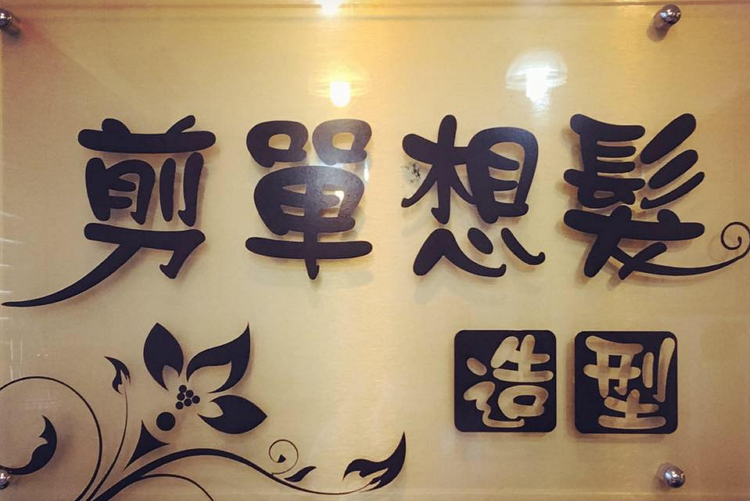 剪單想髮
造型